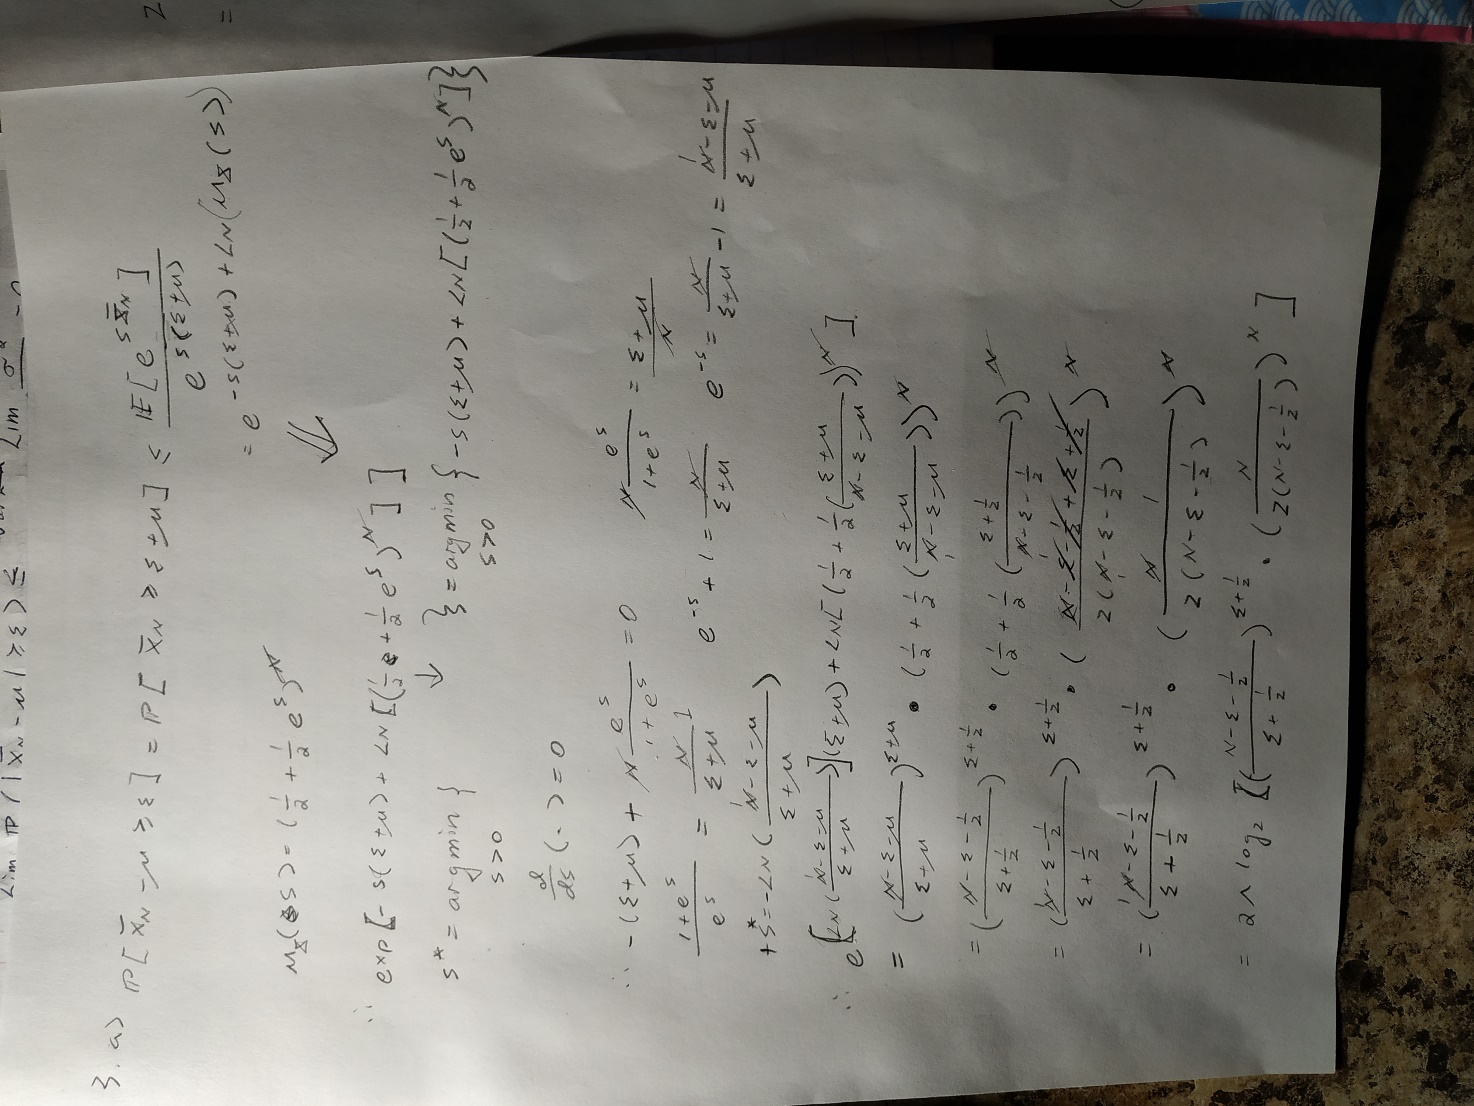 Lim P(|X̄_N - μ| ≥ ε) ≤ Lim σ²
3. a) P[X̄_N - μ ≥ ε] = P[X̄_N ≥ ε+μ] ≤ E[e^{sX̄_N}] / e^{s(ε+μ)}
= e^{-s(ε+μ) + LN(M_X(s))}
M_X(s) = (1/2 + 1/2 e^s)^N
∴ exp[-s(ε+μ) + LN[(1/2 + 1/2 e^s)^N]]
s* = argmin { ↓ } = argmin {-s(ε+μ) + LN[(1/2 + 1/2 e^s)^N]}
s>0 s>0
d/ds (·) = 0
∴ -(ε+μ) + N e^s/(1+e^s) = 0 N e^s/(1+e^s) = (ε+μ)/N
(1+e^s)/e^s = N/(ε+μ) e^{-s} + 1 = N/(ε+μ) e^{-s} = N/(ε+μ) - 1 = (N-ε-μ)/(ε+μ)
+s* = -LN((N-ε-μ)/(ε+μ))
∴ e^[LN((N-ε-μ)/(ε+μ))](ε+μ) + LN[(1/2 + 1/2((ε+μ)/(N-ε-μ)))^N]
= ((N-ε-μ)/(ε+μ))^{ε+μ} • (1/2 + 1/2((ε+μ)/(N-ε-μ)))^N
= ((N-ε-1/2)/(ε+1/2))^{ε+1/2} · (1/2 + 1/2((ε+1/2)/(N-ε-1/2)))^N
= ((N-ε-1/2)/(ε+1/2))^{ε+1/2} · ((N-ε-1/2+ε+1/2)/(2(N-ε-1/2)))^N
= ((N-ε-1/2)/(ε+1/2))^{ε+1/2} · (N/(2(N-ε-1/2)))^N
= 2^log₂[((N-ε-1/2)/(ε+1/2))^{ε+1/2} · (N/(2(N-ε-1/2)))^N]